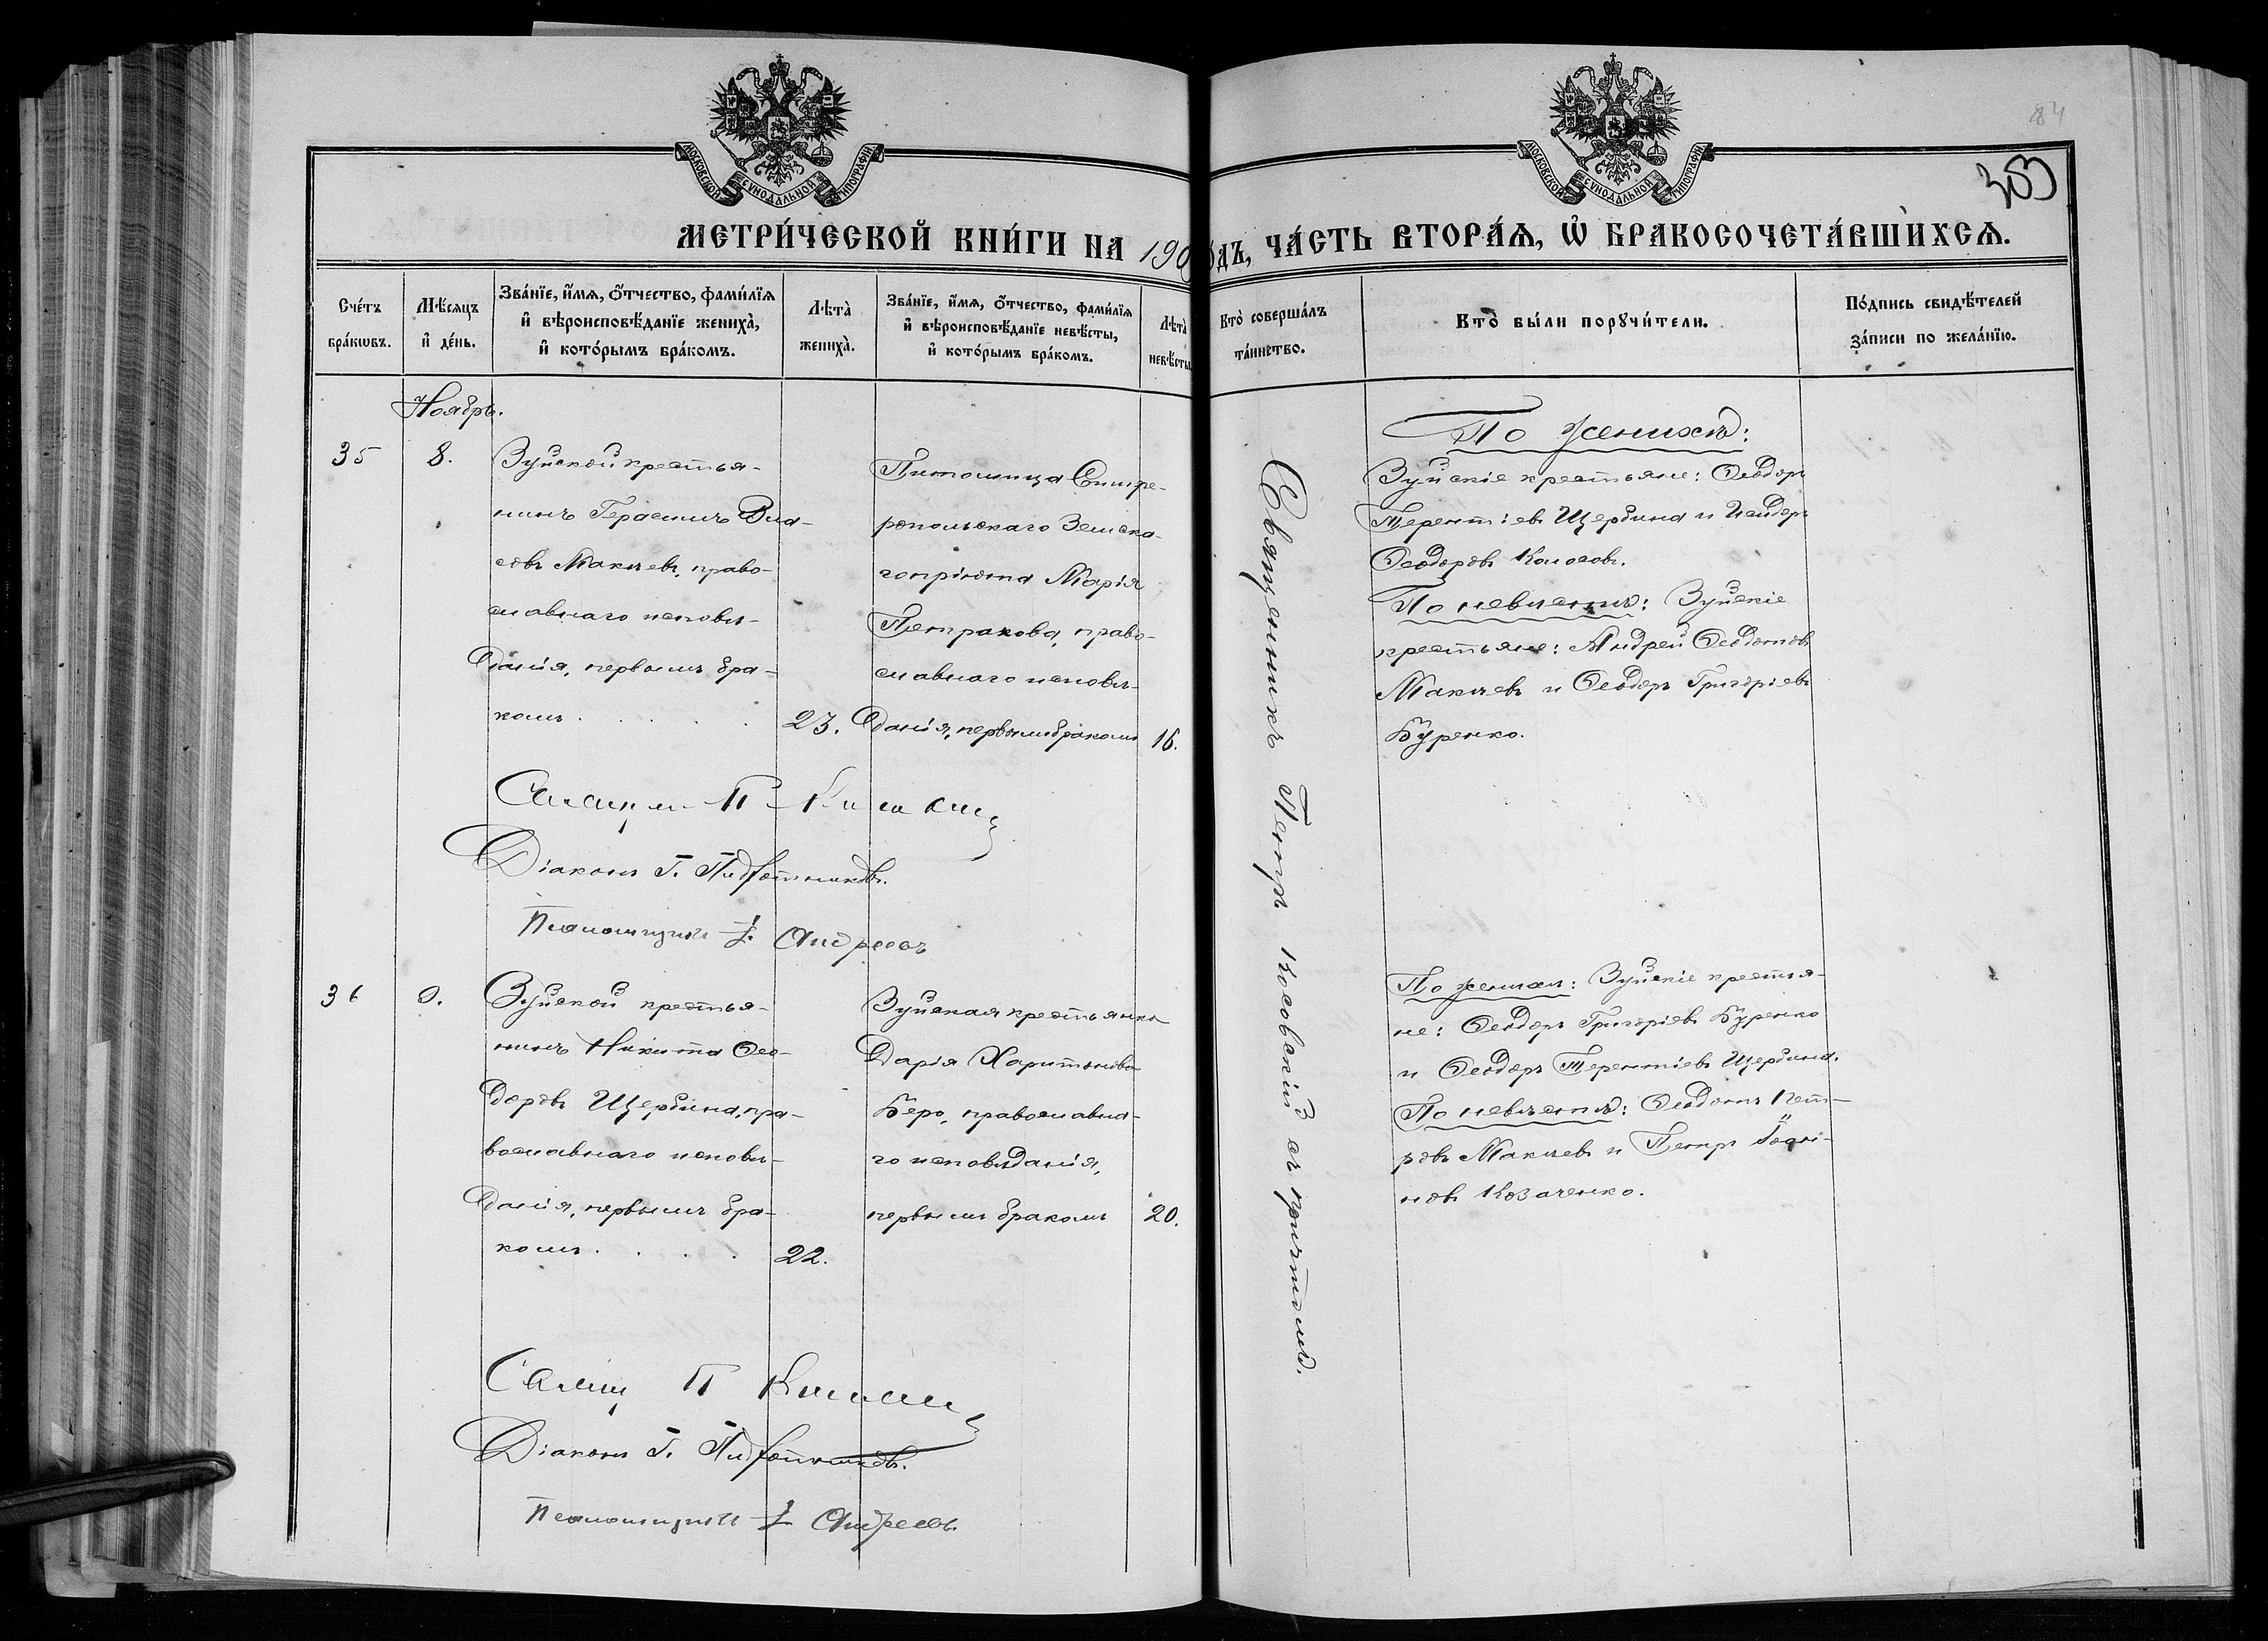 84
303
МОСКОВСКОЙ СѴНОДАЛЬНОЙ ТИПОГРАФІИ
МОСКОВСКОЙ СѴНОДАЛЬНОЙ ТИПОГРАФІИ
МЕТРИ́ЧЕСКОЙ КНИ́ГИ НА 190
ГО́ДЪ, ЧА́СТЬ ВТОРА́Ѧ, Ѽ БРАКОСОЧЕТА́ВШИХСѦ.
Сче́тъ бра́кѡвъ.
Мѣ́сяцъ и҆ де́нь.
Зва́нїе, и҆́мѧ, ѻ҆́тчество, фами́лїѧ и҆ вѣроисповѣ́данїе жениха̀, и҆ кото́рымъ бра́комъ.
Лѣта̀ жениха̀.
Зва́нїе, и҆́мѧ, ѻ҆́тчество, фами́лїѧ и҆ вѣроисповѣ́данїе невѣ́сты, и҆ кото́рымъ бра́комъ.
Лѣта̀ невѣ́сты
Кто̀ соверша́лъ та́инство.
Кто̀ бы́ли порꙋчи́тели.
По́дпись свидѣ́телей за́писи по жела́нїю.
Ноябрь.
35
8.
Зуйской крестья-
нинъ Герасимъ Вла-
совъ Макѣевъ, право-
славнаго исповѣ-
данія, первымъ бра-
комъ . . . . . 23.
Питомица Симфе-
ропольскаго Земска-
го пріюта Марія
Петракова, право-
славнаго исповѣ-
данія, первымъ бракомъ 16.
Священникъ Петръ Косовскій съ причтомъ.
По женихѣ:
Зуйскіе крестьяне: Ѳеодоръ
Терентіевъ Щербина и Исидоръ
Ѳеодоровъ Колосовъ.
По невѣстѣ: Зуйскіе
крестьяне: Андрей Ѳеодотовъ
Макѣевъ и Ѳеодоръ Григоріевъ
Буренко.
Діаконъ Г.
Псаломщикъ Андреевъ
36
9.
Зуйской крестья-
нинъ Никита Ѳео-
доровъ Щербина, пра-
вославнаго исповѣ-
данія, первымъ бра-
комъ . . . . 22.
Зуйская крестьянка
Дарія Харитонова
Беро, православна-
го исповѣданія,
первымъ бракомъ 20.
По женихѣ: Зуйскіе крестья-
не: Ѳеодоръ Григоріевъ Буренко
и Ѳеодоръ Терентіевъ Щербина.
По невѣстѣ: Ѳеодотъ Пет-
ровъ Макѣевъ и Петръ Іоан-
новъ Козаченко.
Діаконъ Г.
Псаломщикъ Андреевъ